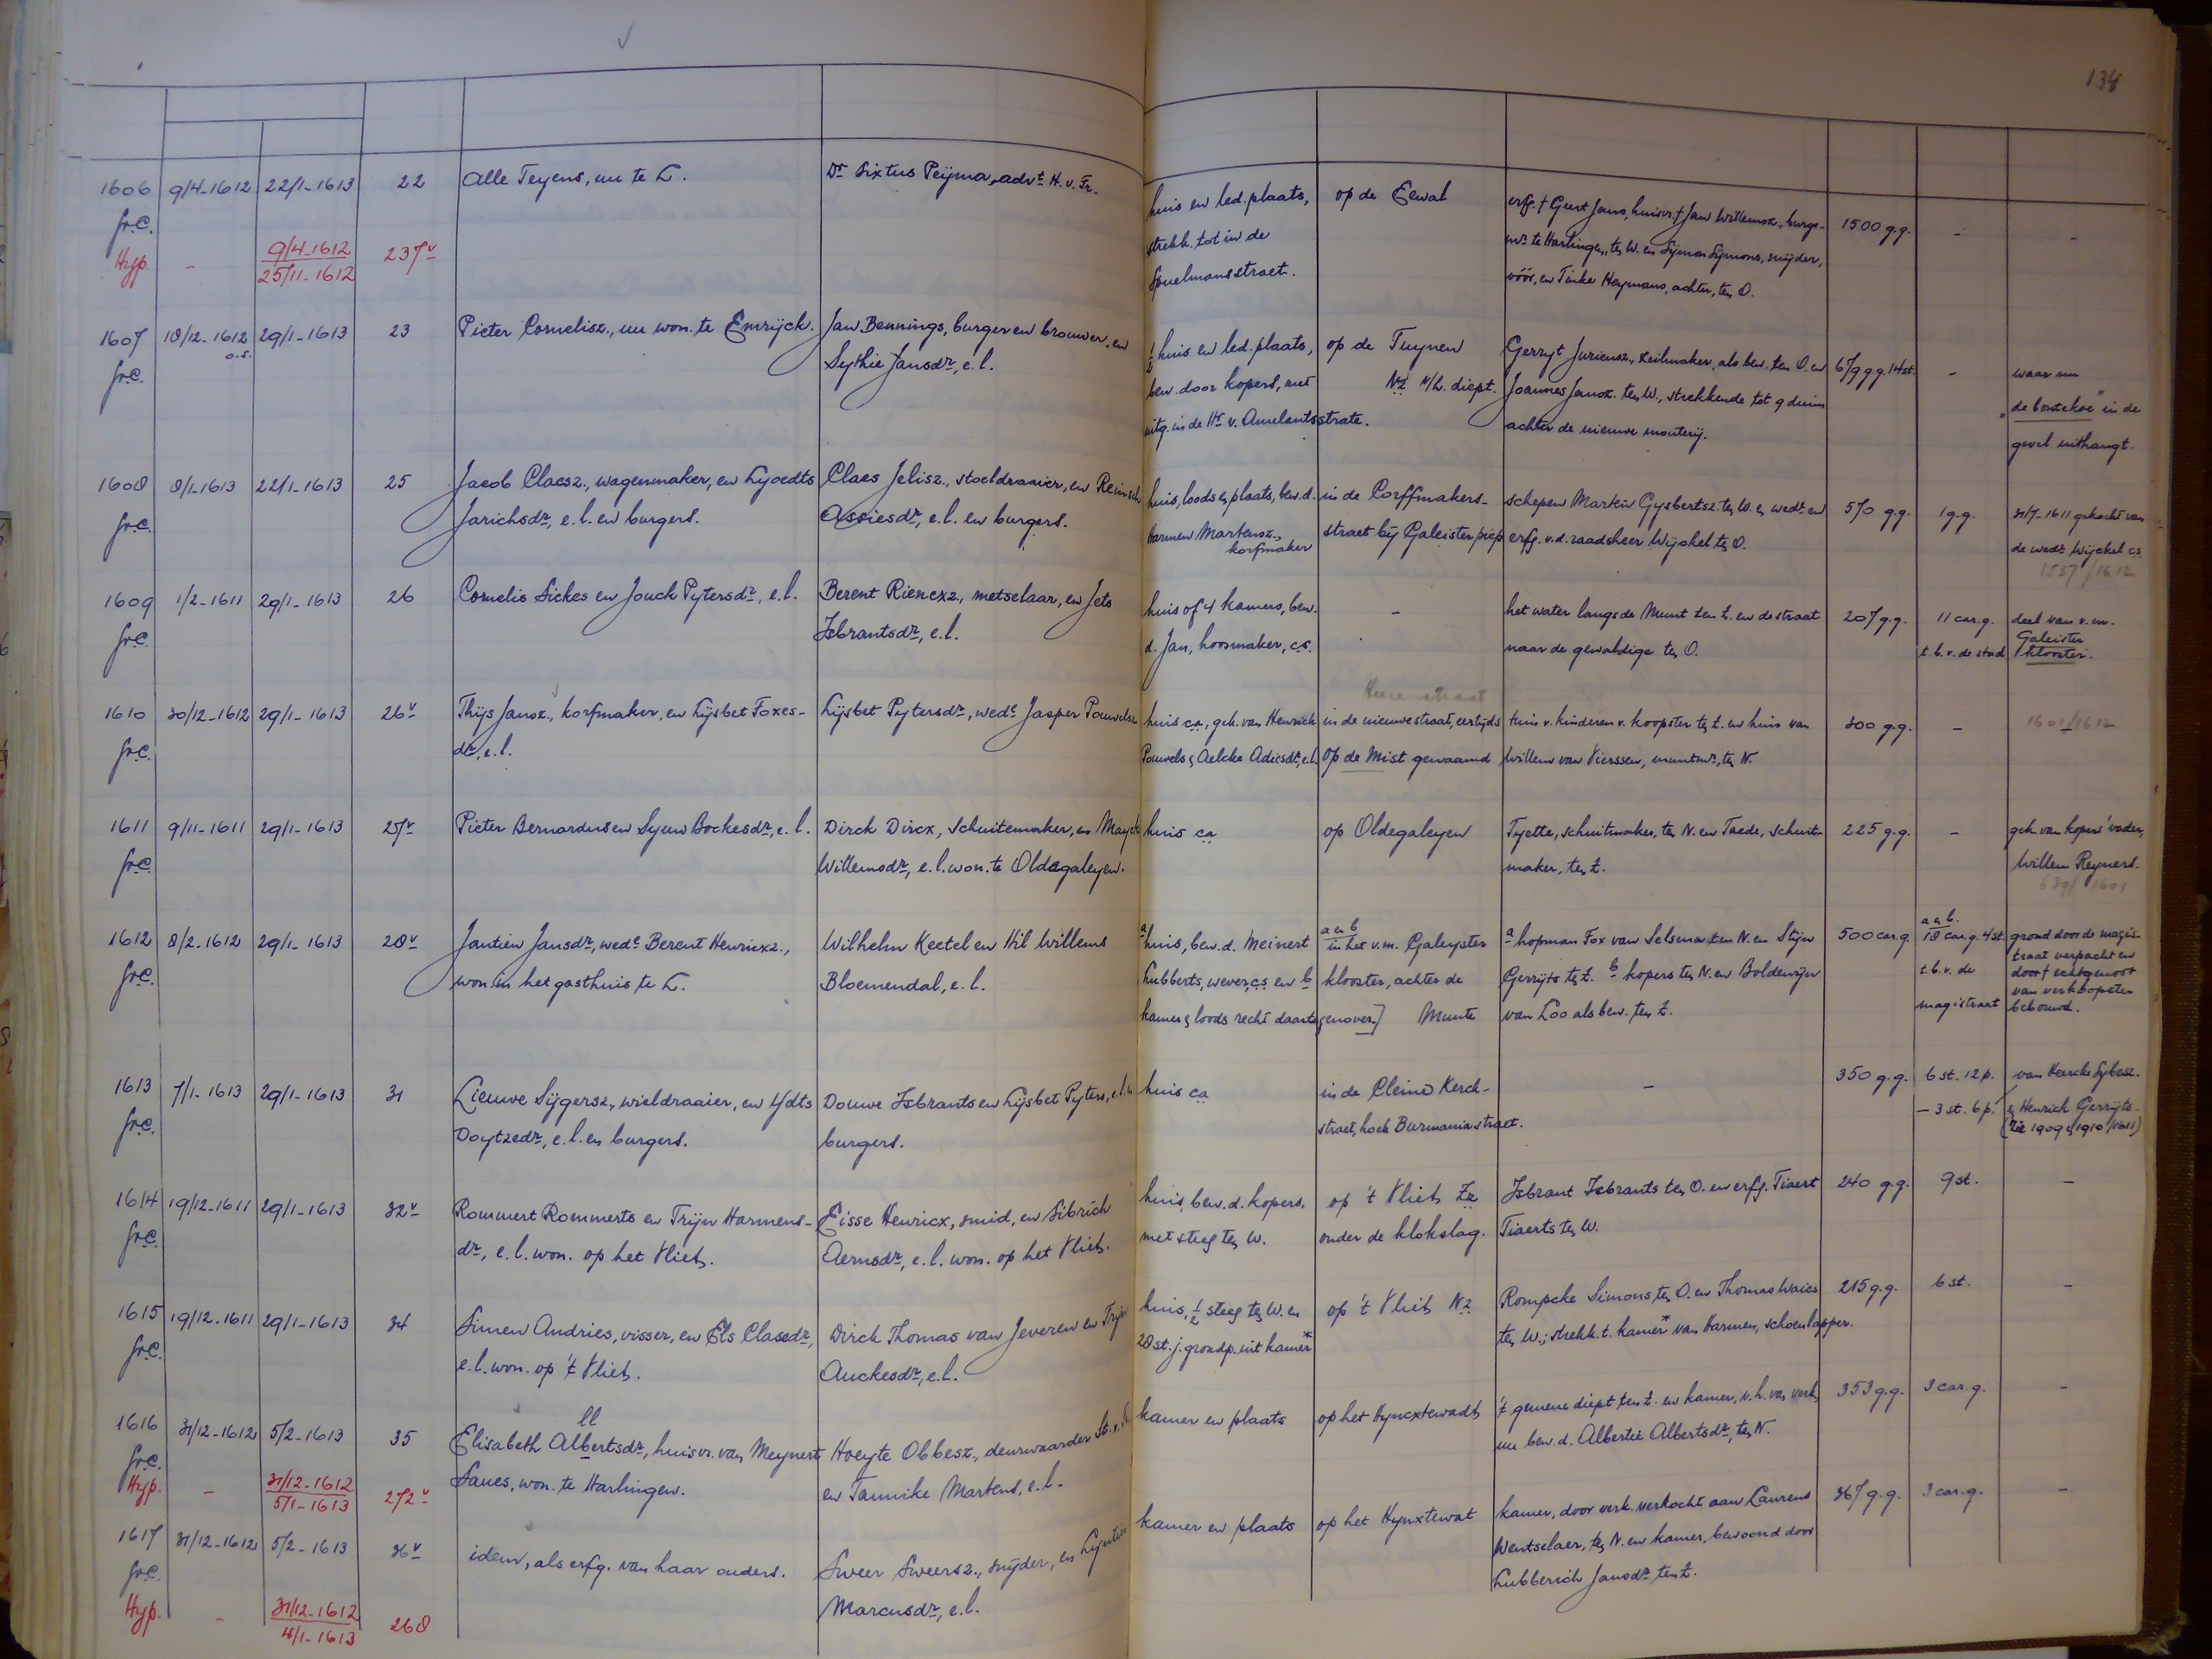 134
1606 9/4-1612 22/1-1613 22 Alle Teyens, nu te L. Dr Sixtus Peijma, advt H. v. Fr. huis en led. plaats, op de Eewal erfg. † Geert Jans, huisvr. † Jan Willemsz., burge- 1500 g.g. - -
gr.e. strekk. tot in de mr te Harlingen, ten W. en Sijmon Sijmons, snijder,
Hyp. - 9/4-1612 237v Spuelmansstraet. vóór, en Tinke Heymans, achter, ten O.
25/11-1612
1607 18/12-1612 29/1-1613 23 Pieter Cornelisz., nu won. te Emrijck. Jan Bennings, burger en brouwer, en ½ huis en led. plaats, op de Tuynen Gerryt Juriensz., zeilmaker, als bew. ten O. en 679 g.g. 14 st. - waar nu
o.s. gr.e. Sythie Jansdr, e.l. bew. door kopers, met Nz v/h. diept. Joannes Jansz. ten W., strekkende tot 9 duim „de bontekoe" in de
uitg. in de Hr v. Amelantsstrate. achter de nieuwe mouterij. gevel uithangt.
1608 8/1-1613 22/1-1613 25 Jacob Claesz., wagenmaker, en Lyoedts Claes Jelisz., stoeldraaier, en Reinsch huis, loods en plaats, bew. d. in de Corffmakers- schepen Marten Gysbertsz. ten W. en wedr en 570 g.g. 1 g.g. 31/7-1611 gekocht van
gr.e. Jarichsdr, e.l. en burgers. Assiesdr, e.l. en burgers. Harmen Martensz., straet bij Galeister piep erfg. v.d. raadsheer Wijckel ten O. de wedr Wijckel cs
korfmaker 1557/1612
1609 1/2-1611 29/1-1613 26 Cornelis Sickes en Jouck Pytersdr, e.l. Berent Rienexz., metselaar, en Jets huis of 4 kamers, bew. - het water langs de Munt ten Z. en de straat 207 g.g. 11 car.g. deel van v.m.
gr.e. Isbrantsdr, e.l. d. Jan, hoosmaker, cs. naar de gewaldige ten O. t.b.v. de stad Galeister klooster.
Heere straat
1610 30/12-1612 29/1-1613 26v Thijs Jansz., korfmaker, en Lijsbet Foxes- Lijsbet Pytersdr, wede Jasper Pouwelsz. huis ca, gek. van Henrick in de nieuwe straat, eertijds tuin v. kinderen v. koopster ten Z. en huis van 300 g.g. - 1601/1612
gr.e. dr, e.l. Pouwels en Aelcke Adiesdr, e.l. op de Mist genaamd Willem van Vierssen, muntmr, ten N.
1611 9/11-1611 29/1-1613 27v Pieter Bernardus en Syuw Bockesdr, e.l. Dirck Dircx, schuitemaker, en Mayck huis ca op Oldegaleyen Tyette, schuitmaker, ten N. en Taede, schuit- 225 g.g. - gek. van kopers' vader,
gr.e. Willemsdr, e.l. won. te Oldegaleyen. maker, ten Z. Willem Reyners.
639/1601
1612 8/2-1612 29/1-1613 28v Jantien Jansdr, wede Berent Henricxz., Wilhelm Keetel en Hil Willems a huis, bew. d. Meinert a en b in het v.m. Galeyster a hopman Fox van Selsma ten N. en Stijn 500 car.g. a en b. 18 car.g. 4 st. grond door de magis-
gr.e. won. in het gasthuis te L. Bloemendal, e.l. Lubberts, wever, cs en b klooster, achter de Gerrijts ten Z. b kopers ten N. en Boldewijn t.b.v. de traat verpacht en
kamer en loods recht daartegenover.] Munte van Loo als bew. ten Z. magistraat door † echtgenoot
van verkoopster
bebouwd.
1613 7/1-1613 29/1-1613 31 Lieuwe Sijgersz., wieldraaier, en Ydts Douwe Isbrants en Lijsbet Pyters, e.l. en huis ca in de Cleine Kerck- - 350 g.g. 6 st. 12 p. van Keercke Sybesz.
gr.e. Doytzedr, e.l. en burgers. burgers. straet, hoek Burmaniastraet. - 3 st. 6 p. en Henrick Gerrijts.
(zie 1909 en 1910/1611)
1614 19/12-1611 29/1-1613 32v Rommert Rommerts en Trijn Harmens- Eisse Henricx, smid, en Sibrich huis, bew. d. kopers, op 't Vliet Zz Isbrant Isbrants ten O. en erfg. Tiaert 240 g.g. 9 st. -
gr.e. dr, e.l. won. op het Vliet. Aernsdr, e.l. won. op het Vliet. met steeg ten W. onder de klokslag. Tiaerts ten W.
1615 19/12-1611 29/1-1613 34 Simen Andries, visser, en Els Claesdr, Dirck Thomas van Jeveren en Trijn huis, ½ steeg ten W. en op 't Vliet Nz Rompcke Simons ten O. en Thomas Waies 215 g.g. 6 st. -
gr.e. e.l. won. op 't Vliet. Auckesdr, e.l. 28 st. j. grondp. uit kamer* ten W.; strekk. t. kamer* van Harmen, schoenlapper.
1616 31/12-1612 5/2-1613 35 Elisabeth Albertsdr, huisvr. van Meynert Hoeyte Obbesz., deurwaarder St. v. Fr. kamer en plaats op het Hyncxtewadt 't gemene diept ten Z. en kamer, v.h. van verk., 353 g.g. 3 car.g. -
gr.e. ll Sanes, won. te Harlingen. en Tannike Martens, e.l. nu bew. d. Albertie Albertsdr, ten N.
Hyp. - 31/12-1612 272v
5/1-1613
1617 31/12-1612 5/2-1613 36v idem, als erfg. van haar ouders. Sweer Sweersz., snijder, en Lijntien kamer en plaats op het Hynxtewat kamer, door verk. verkocht aan Laurens 367 g.g. 3 car.g. -
gr.e. Marcusdr, e.l. Wentselaer, ten N. en kamer, bewoond door
Hyp. - 31/12-1612 268 Lubberich Jansdr ten Z.
4/1-1613